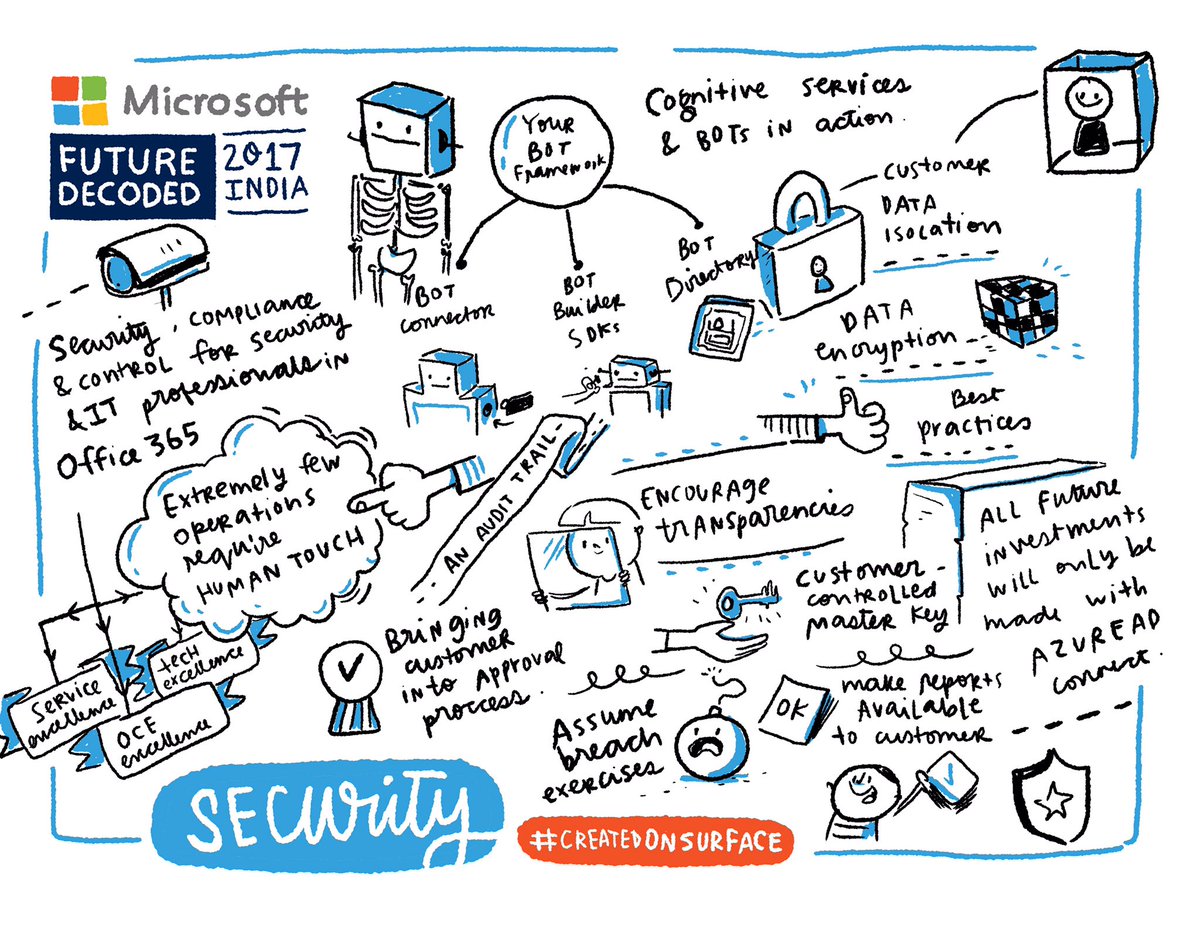 Microsoft
FUTURE
DECODED
2017
INDIA
YOUR
BOT
Framework
BOT
connector
BOT
Builder
SDKs
BOT
Directory
Cognitive services
& BOTs in action.
customer
DATA
isolation
DATA
encryption
Best
practices
Security, compliance
& control for security
& IT professionals in
Office 365
Extremely few
operations
require
HUMAN TOUCH
AN AUDIT TRAIL
service
excellence
tech
excellence
OCE
excellence
Bringing
customer
into Approval
process.
ENCOURAGE
transparencies
customer-
controlled
master key
ALL Future
investments
will only be
made with
AZUREAD
connect.
Assume
breach
exercises
OK
make reports
Available
to customer
Security
#CREATEDONSURFACE